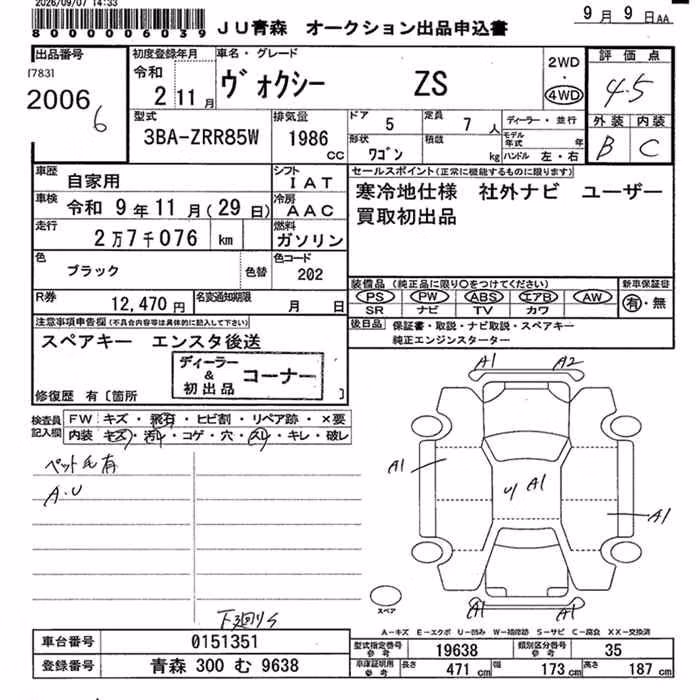 2026/09/07 14:33
8000006039
JU青森 オークション出品申込書
9月9日AA
出品番号
17831
2006
6
初度登録年月
令和
2 11月
車名・グレード
ヴォクシー ZS
2WD
・
4WD
評価点
4.5
外装 内装
B C
型式
3BA-ZRR85W
排気量
1986
CC
ドア 5
定員 7人
形状 ワゴン
積載 kg
ディーラー・並行
モデル年式 年
ハンドル 左・右
車歴
自家用
シフト
IAT
車検
令和 9年11月(29日)
冷房
AAC
走行
2万7千076 km
燃料
ガソリン
色
ブラック
色替
色コード
202
R券
12,470円
名変通知期限
月 日
セールスポイント(正常に機能するものに限ります)
寒冷地仕様 社外ナビ ユーザー
買取初出品
装備品 (純正品に限り○をつけてください)
PS PW ABS エアB AW
SR ナビ TV カワ
新車保証書
有・無
後日品
保証書・取説・ナビ取説・スペアキー
純正エンジンスターター
注意事項申告欄(不具合内容等は具体的に記入して下さい)
スペアキー エンスタ後送
ディーラー
&
初出品
コーナー
修復歴 有〔箇所 〕
検査員
記入欄
FW キズ・飛石・ヒビ割・リペア跡・×要
内装 キズ・汚レ・コゲ・穴・スレ・キレ・破レ
ペット毛有
A.U
下廻りS
A1 A2
A1
A1
A1
A1 A1
スペア
A-キズ E-エクボ U-凹み W-補修跡 S-サビ C-腐食 XX-交換済
車台番号
0151351
型式指定番号
参考
19638
類別区分番号
参考
35
登録番号
青森 300 む 9638
車庫証明用
参考
長さ 471cm
幅 173cm
高さ 187cm